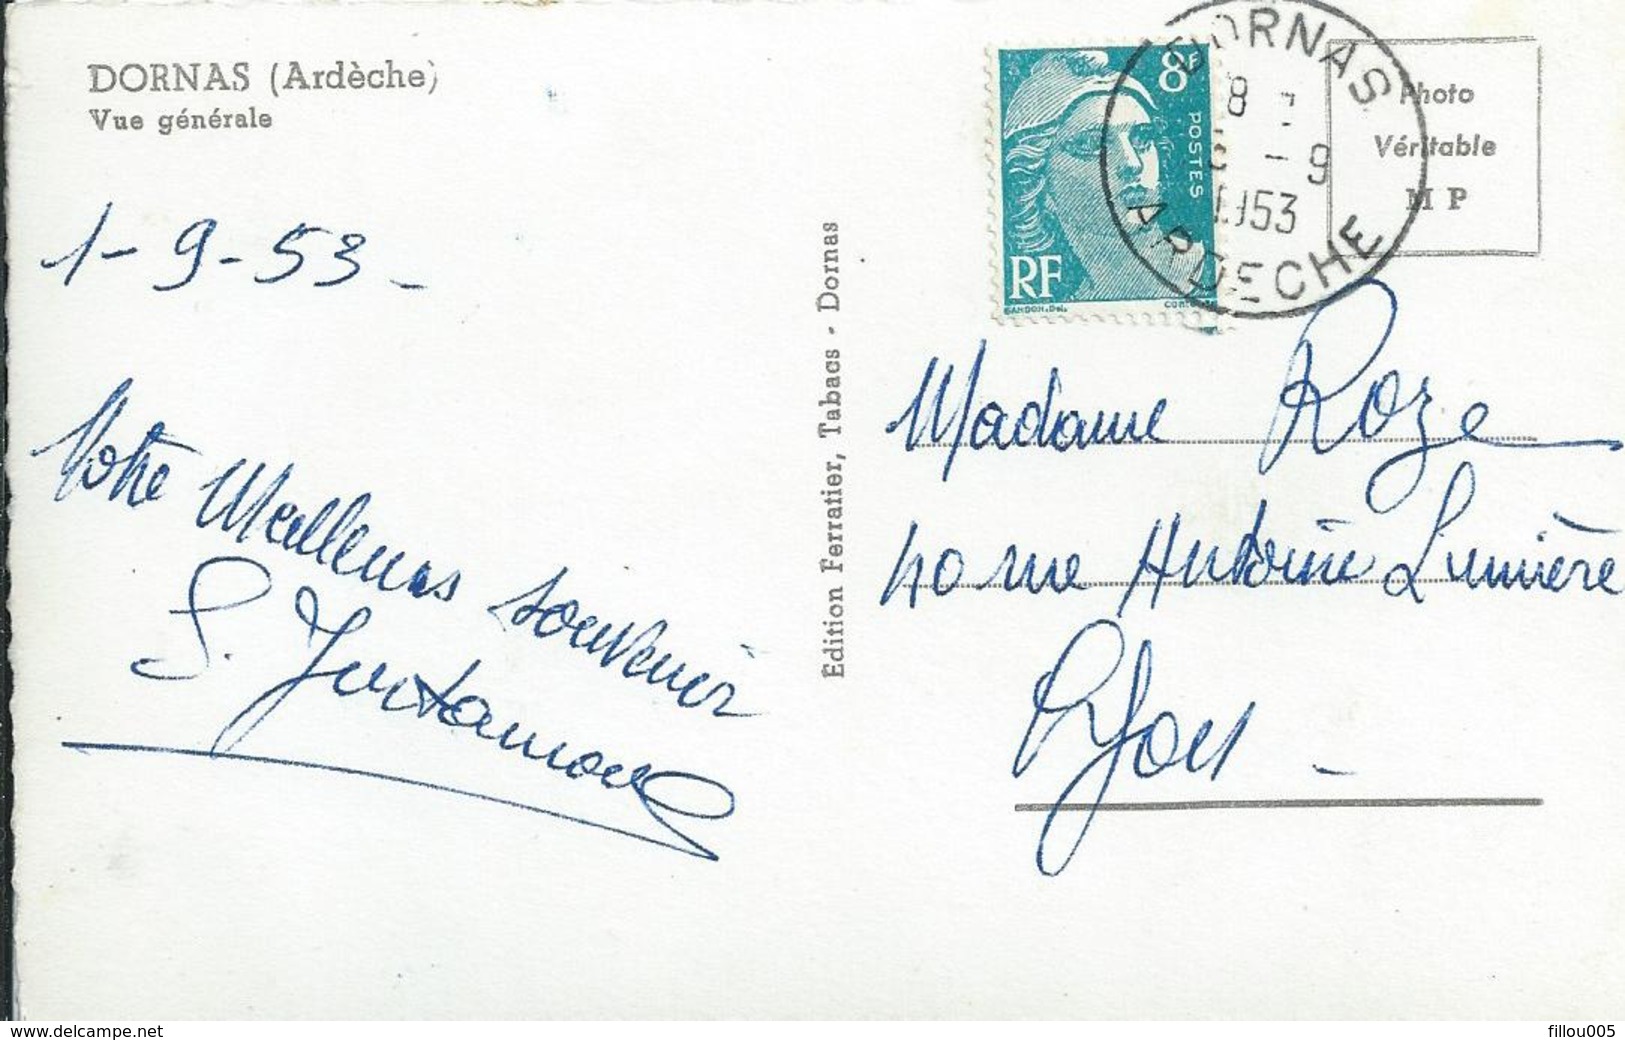 DORNAS (Ardèche)
Vue générale
1-9-53-
Votre Meilleurs souvenir
Edition Ferratier, Tabacs - Dornas
8F
POSTES
RF
GANDON.Del.
DORNAS
8
-9
1953
ARDECHE
Photo
Véritable
M P
Madame Roze
40 rue Antoine Lumière
Lyon -
www.delcampe.net
fillou005